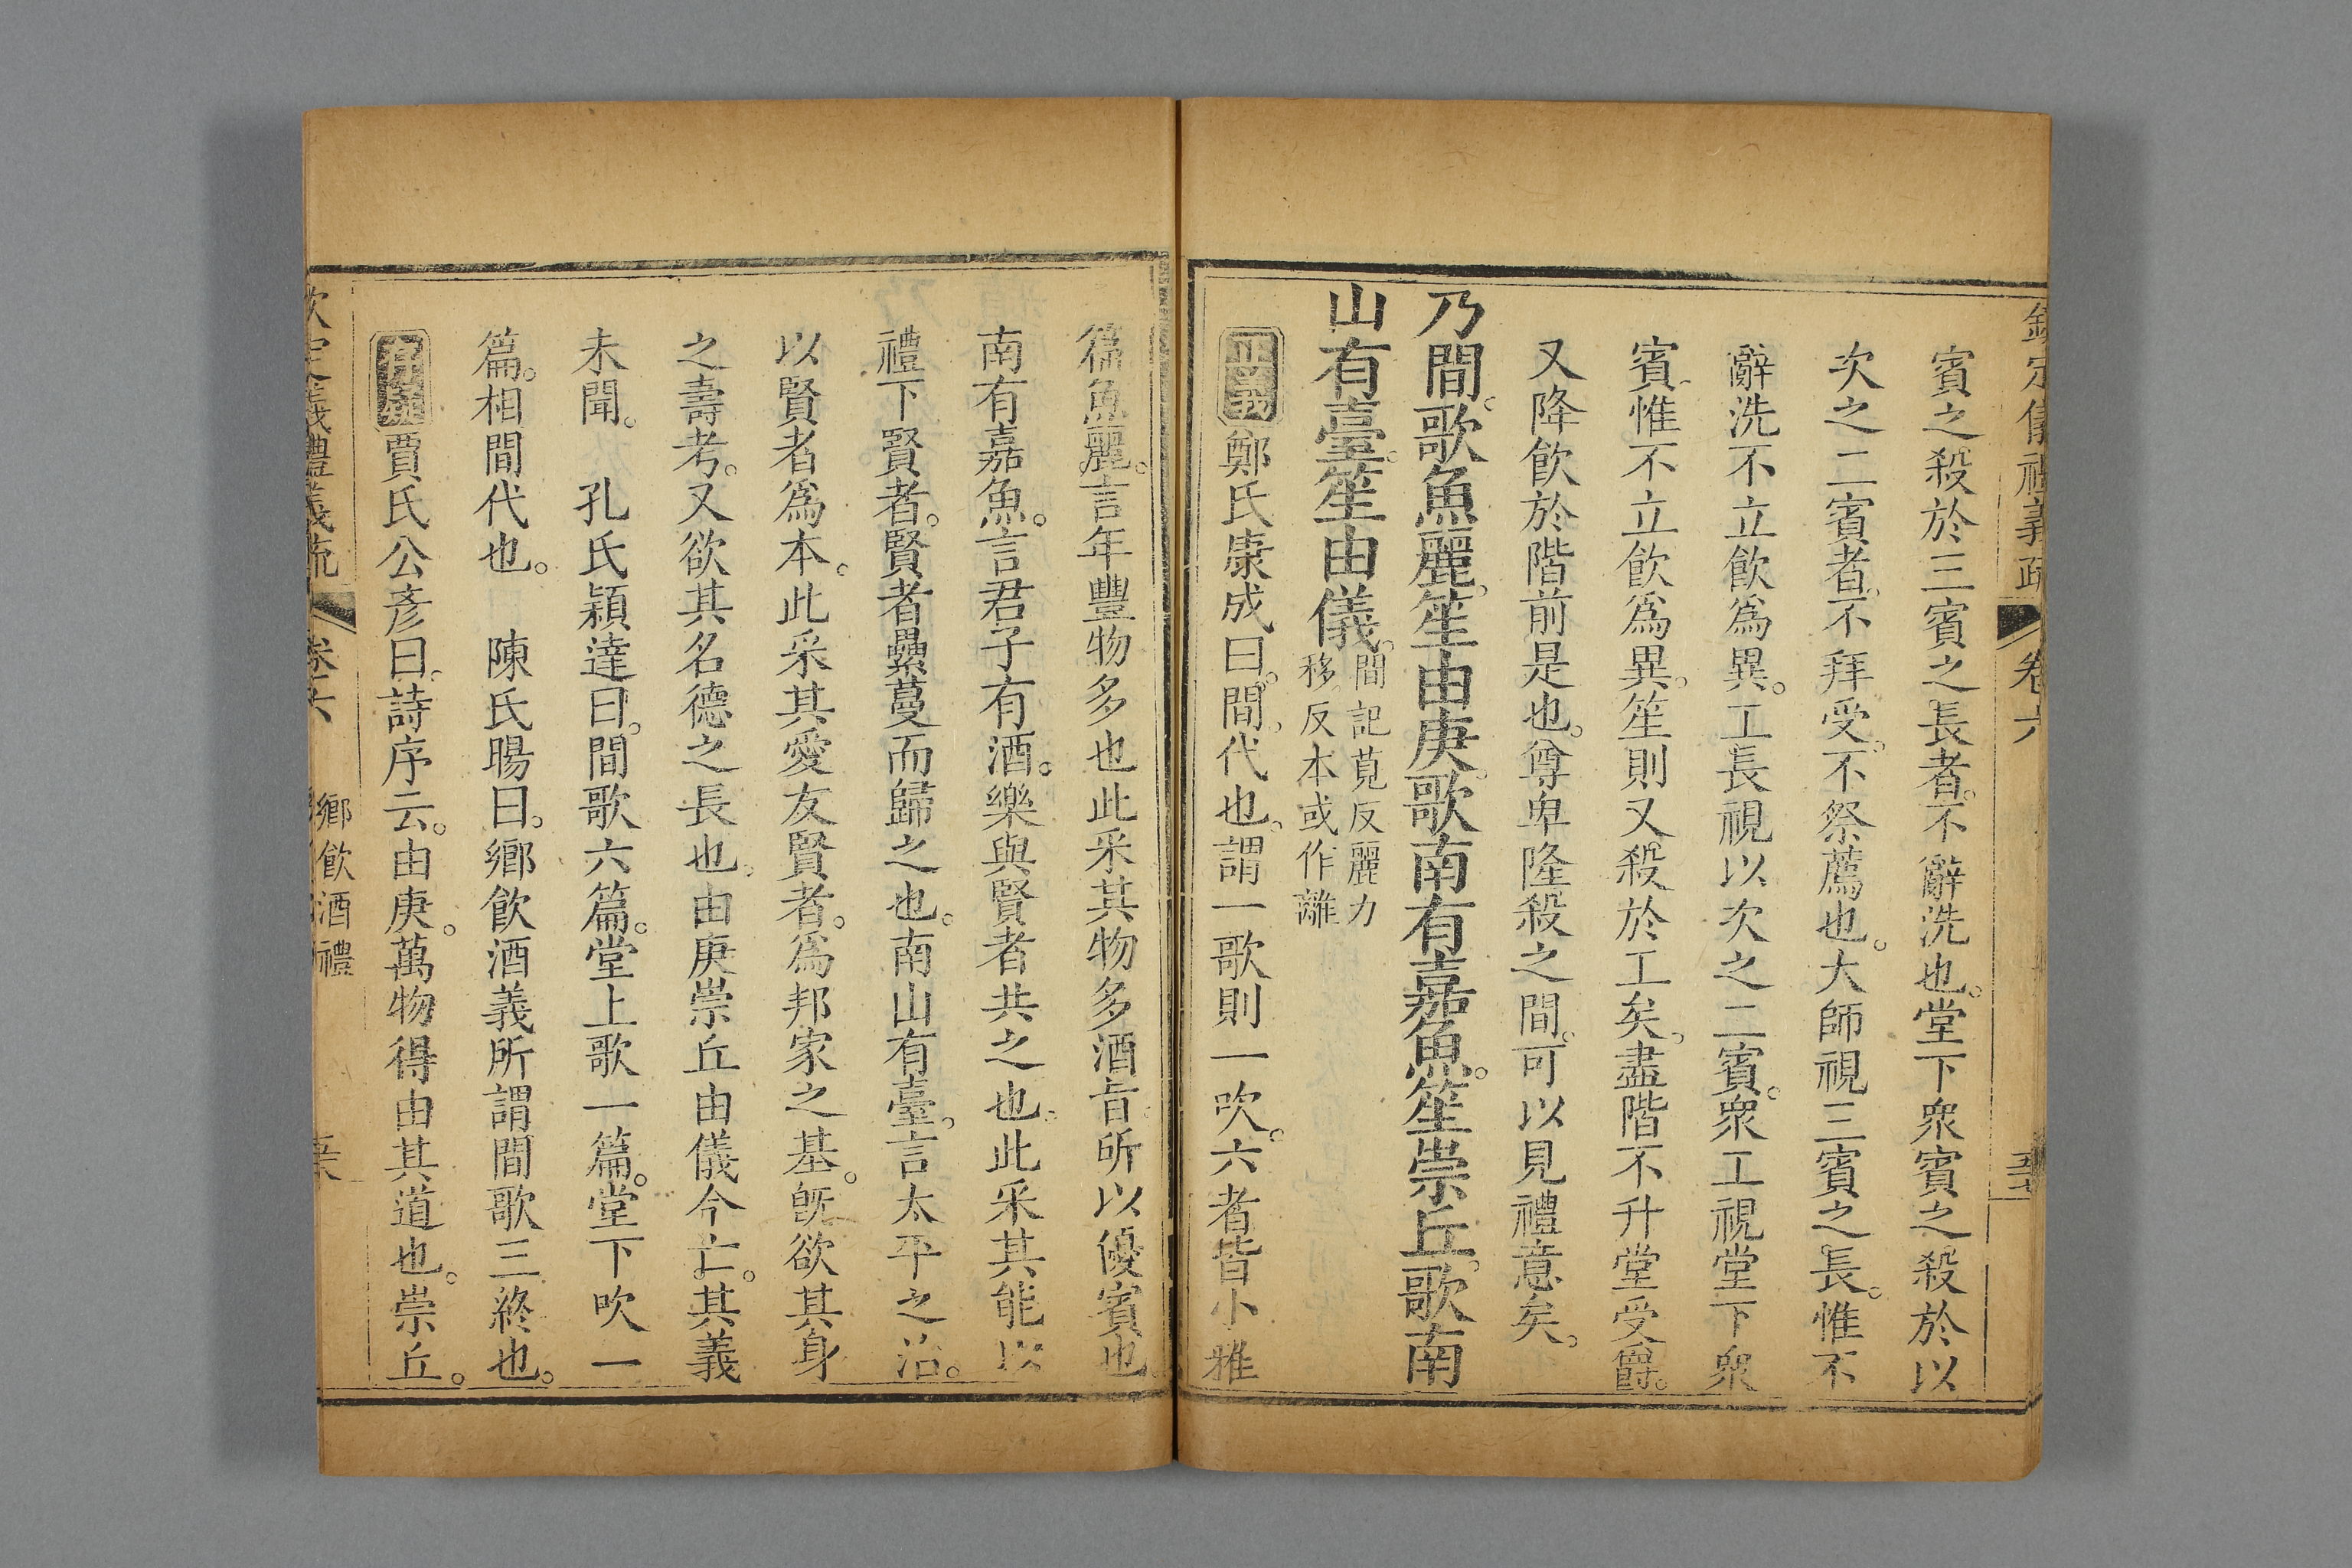 欽定儀禮義疏　卷六
賓之殺於三賓之長者。不辭洗也。堂下衆賓之殺於以
次之二賓者。不拜受。不祭薦也。大師視三賓之長。惟不
辭洗不立飲爲異。工長視以次之二賓。衆工視堂下衆
賓。惟不立飲爲異。笙則又殺於工矣。盡階不升堂受爵。
又降飲於階前是也。尊卑隆殺之間。可以見禮意矣。
乃間歌魚麗。笙由庚。歌南有嘉魚。笙崇丘。歌南
山有臺。笙由儀。間記莧反麗力
移反本或作離
正義鄭氏康成曰。間。代也。謂一歌則一吹。六者皆小雅
篇魚麗。言年豐物多也此采其物多酒旨。所以優賓也
南有嘉魚。言君子有酒。樂與賢者共之也。此采其能以
禮下賢者。賢者纍蔓而歸之也。南山有臺。言太平之治。
以賢者爲本。此采其愛友賢者。爲邦家之基。既欲其身
之壽考。又欲其名德之長也。由庚崇丘由儀今亡。其義
未聞。　孔氏穎達曰。間歌六篇。堂上歌一篇。堂下吹一
篇。相間代也。　陳氏暘曰。鄉飲酒義所謂間歌三終也。
賈氏公彥曰。詩序云。由庚。萬物得由其道也。崇丘。
欽定儀禮義疏　卷六　鄉飲酒禮